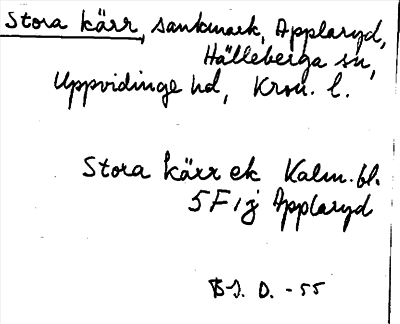 Stora kärr, sankmark, Applaryd,
Hälleberga sn,
Uppvidinge hd, Kron. l.
Stora kärr ek Kalm. bl.
5F1j Applaryd
B-J. D. -55